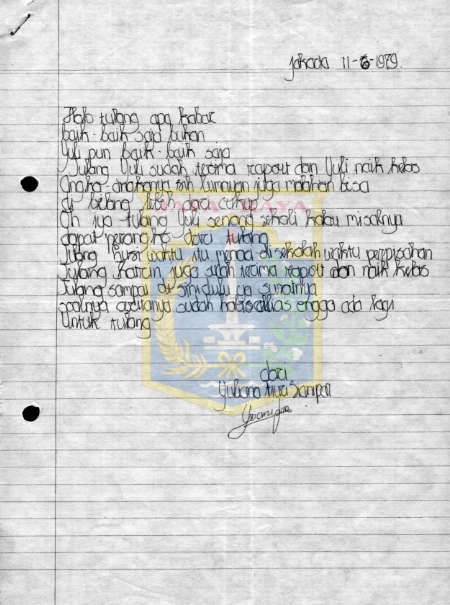 Jakarta 11-6-1979.
Halo tulang apa kabar
baik-baik saja bukan
Yuli pun baik-baik saja
Tulang Yuli sudah terima raport dan Yuli naik kelas
Angka-angkanya sih lumayan juga malahan bisa
di bilang lebih dari cukup
JAYA RAYA
Oh iya tulang Yuli senang sekali kalau misalnya
dapat perangko dari tulang
Tulang kursi waktu itu menari di sekolah waktu perpisahan
Tulang Katrin juga sudah terima raport dan naik kelas
Tulang sampai di sini dulu ya suratnya
soalnya ceritanya sudah habis engga ada lagi
untuk tulang
dari
Yuliana